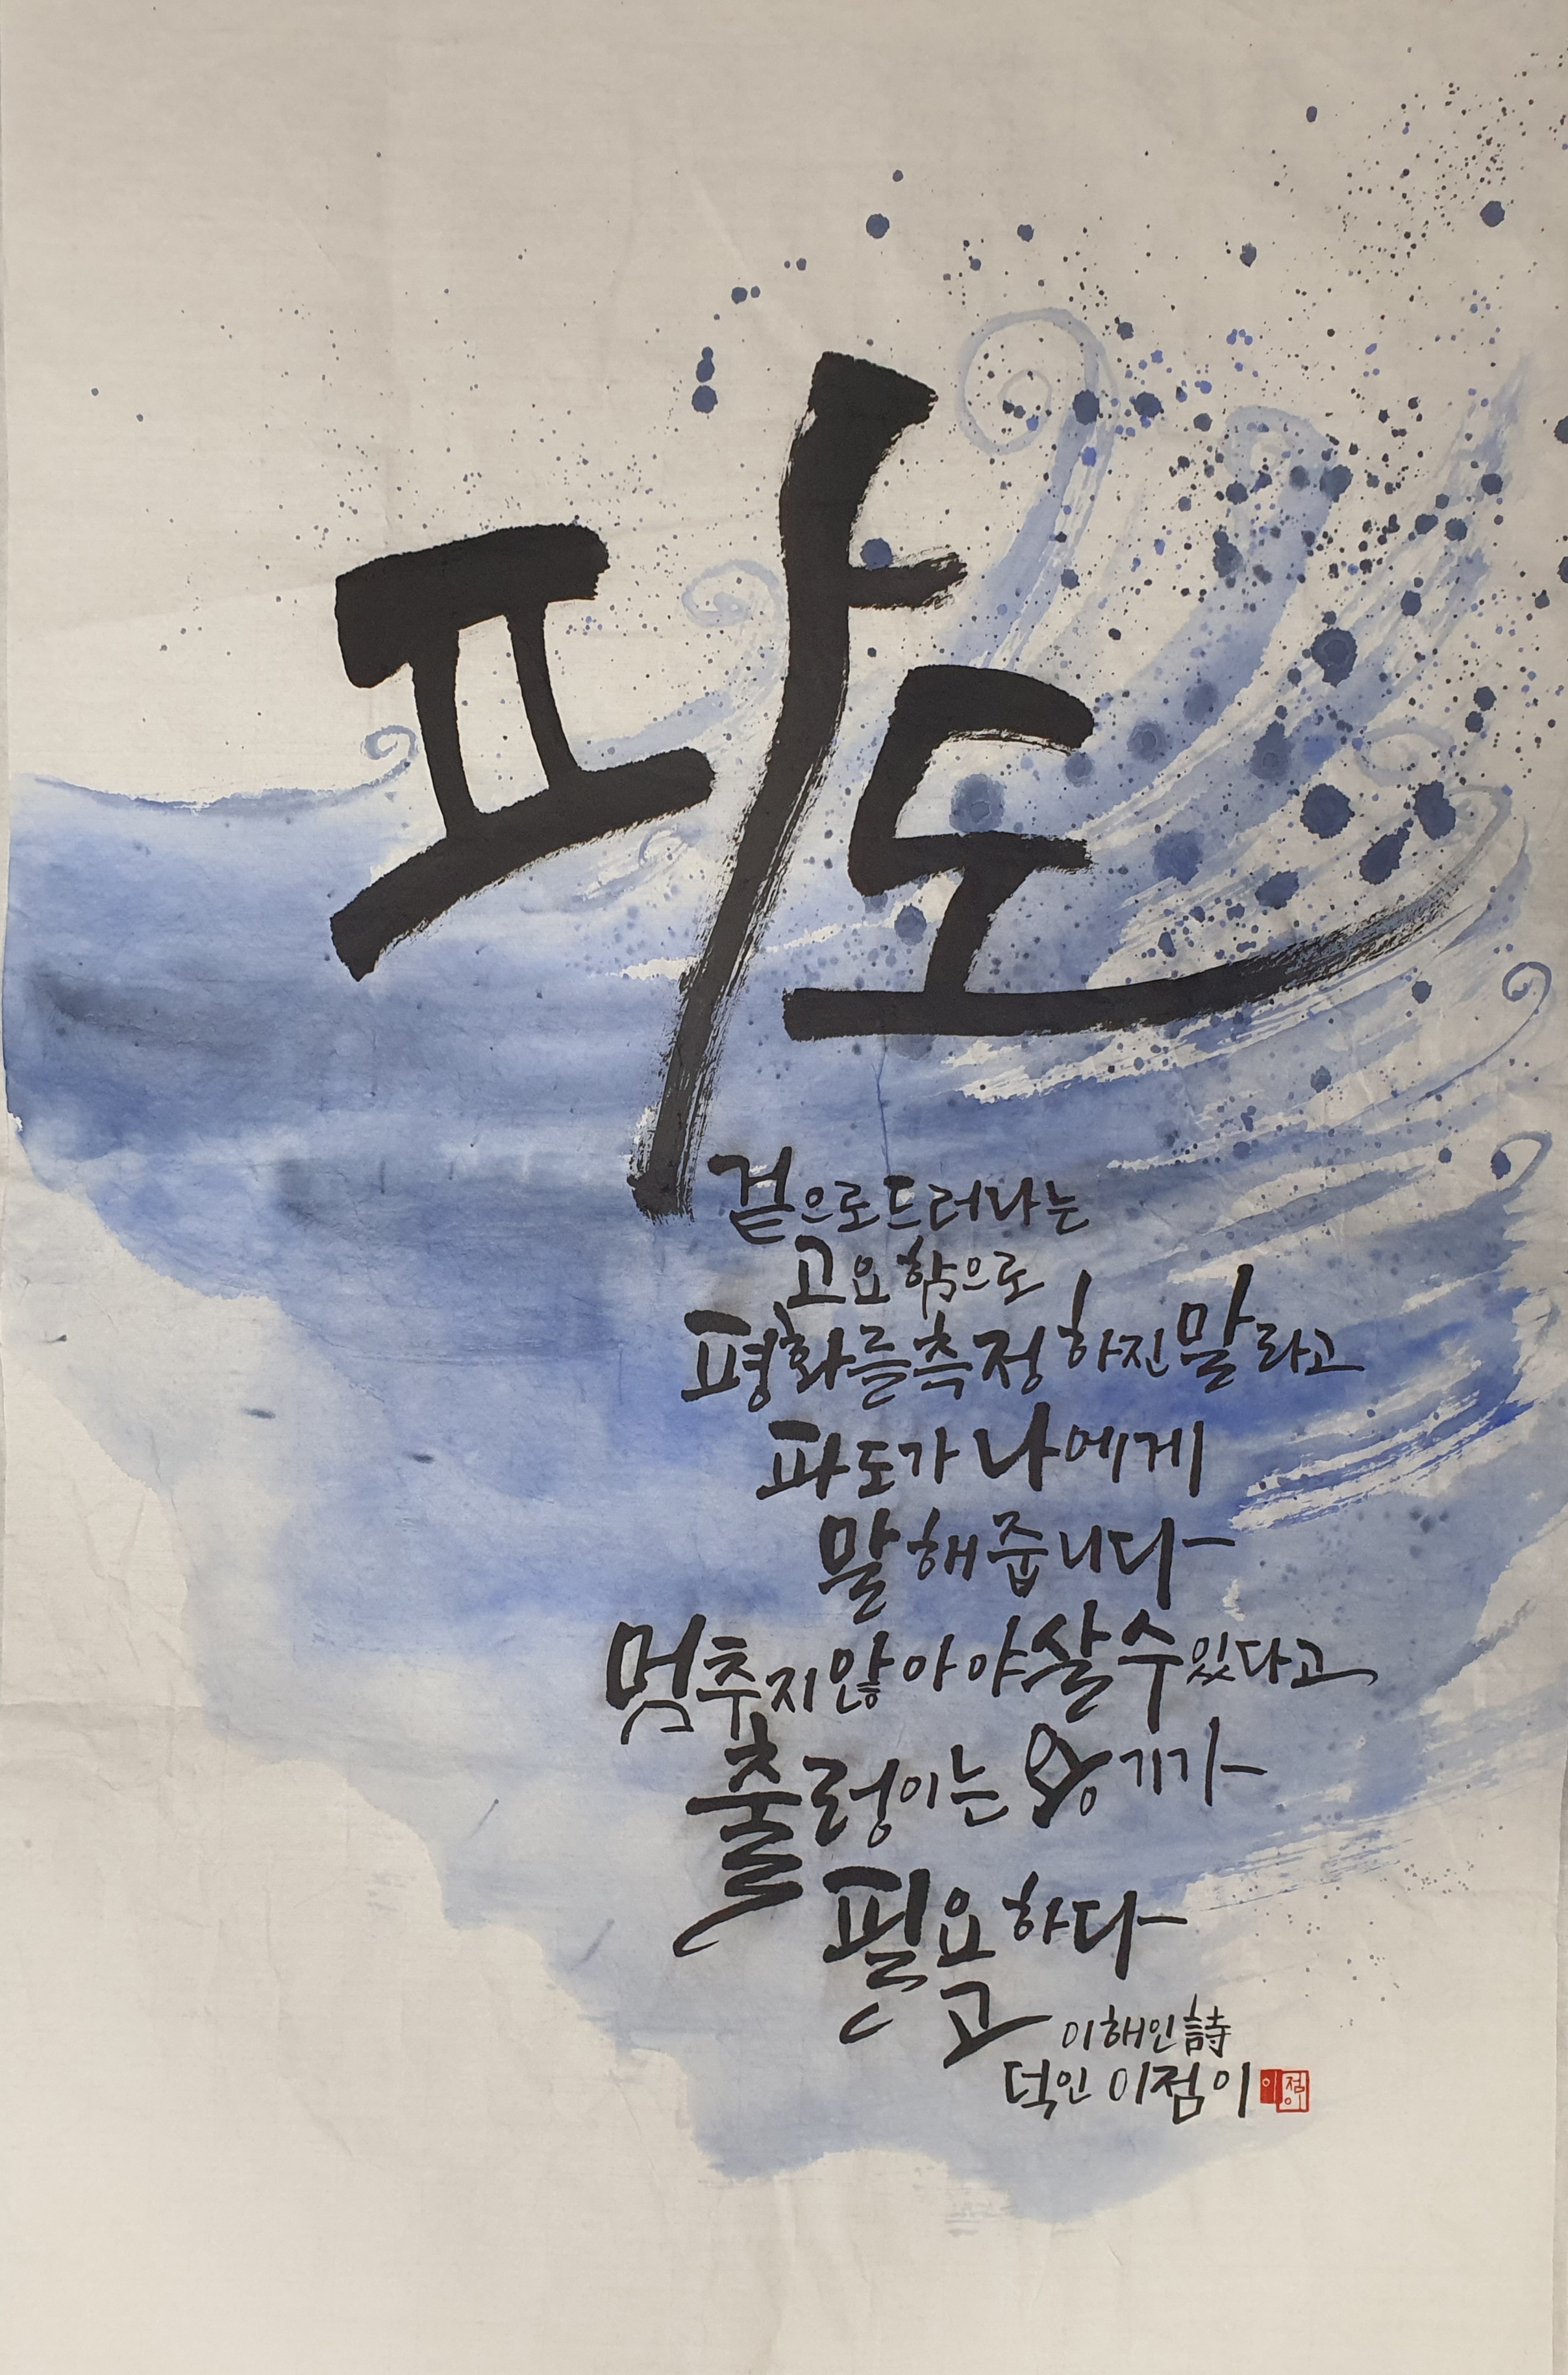 파도
겉으로 드러나는
고요함으로
평화를 측정하진 말라고
파도가 나에게
말해줍니다
멈추지 않아야 살 수 있다고
출렁이는 용기가
필요하다
고
이해인 詩
덕인 이점이
이점이